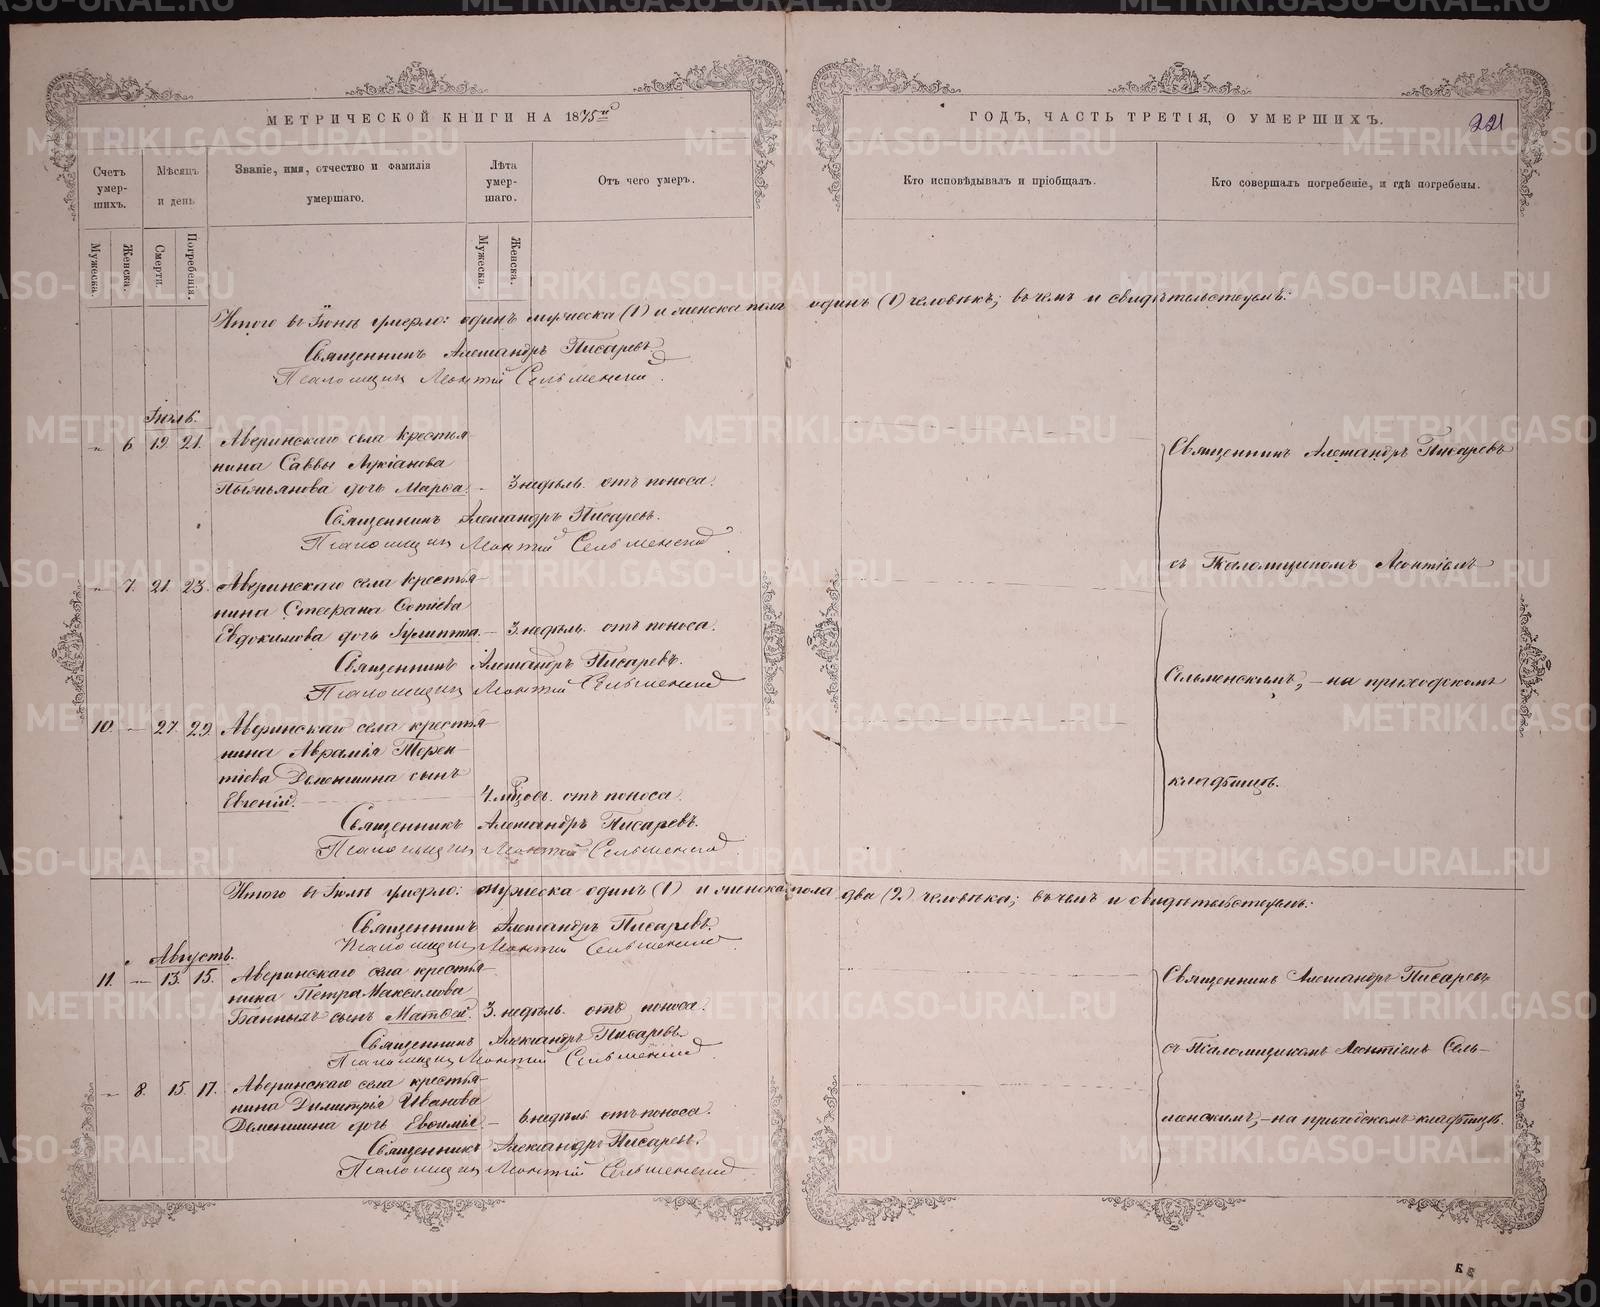 МЕТРИЧЕСКОЙ КНИГИ НА 1875й
ГОДЪ, ЧАСТЬ ТРЕТІЯ, О УМЕРШИХЪ.
221
Счетъ умер-шихъ.
Мѣсяцъ и день
Званіе, имя, отчество и фамилія
умершаго.
Лѣта умер-шаго.
Отъ чего умеръ.
Кто исповѣдывалъ и пріобщалъ.
Кто совершалъ погребеніе, и гдѣ погребены.
Мужеска.
Женска.
Смерти.
Погребенія.
Мужеска.
Женска.
Итого въ Іюнѣ умерло: одинъ мужеска (1) и женска пола одинъ (1) человѣкъ; въ чемъ и свидѣтельствуемъ:
Священникъ Александръ Писаревъ
Псаломщикъ Леонтій Сельменскій.
Іюль.
" 6. 19 21. Аверинскаго села крестья-
нина Саввы Лукіанова
Пьяньянова дочь Марѳа. – 3 недѣль. отъ поноса.
Священникъ Александръ Писаревъ.
Псаломщикъ Леонтій Сельменскій
Священникъ Александръ Писаревъ
" 7. 21. 23. Аверинскаго села крестья-
нина Стефана Фотіева
Евдокимова дочь Іулитта. – 3. недѣль. отъ поноса.
Священникъ Александръ Писаревъ.
Псаломщикъ Леонтій Сельменскій
съ Псаломщикомъ Леонтіемъ
Сельменскимъ, – на приходскомъ
10. – 27. 29. Аверинскаго села крестья-
нина Авраамія Терен-
тіева Деменшина сынъ
Евгеній. 4. мѣсяцовъ. отъ поноса.
Священникъ Александръ Писаревъ.
Псаломщикъ Леонтій Сельменскій
кладбищѣ.
Итого въ Іюлѣ умерло: мужеска одинъ (1) и женска пола два (2) человѣка; въ чемъ и свидѣтельствуемъ:
Священникъ Александръ Писаревъ.
Псаломщикъ Леонтій Сельменскій
Августъ.
11. – 13. 15. Аверинскаго села крестья-
нина Петра Максимова
Банныхъ сынъ Матѳей. 3. недѣль. отъ поноса.
Священникъ Александръ Писаревъ.
Псаломщикъ Леонтій Сельменскій
Священникъ Александръ Писаревъ
съ Псаломщикомъ Леонтіемъ Сель-
– 8. 15. 17. Аверинскаго села крестья-
нина Димитрія Иванова
Деменшина дочь Евѳимія. – 6 недѣль отъ поноса.
Священникъ Александръ Писаревъ.
Псаломщикъ Леонтій Сельменскій
менскимъ, – на приходскомъ кладбищѣ.
METRIKI.GASO-URAL.RU